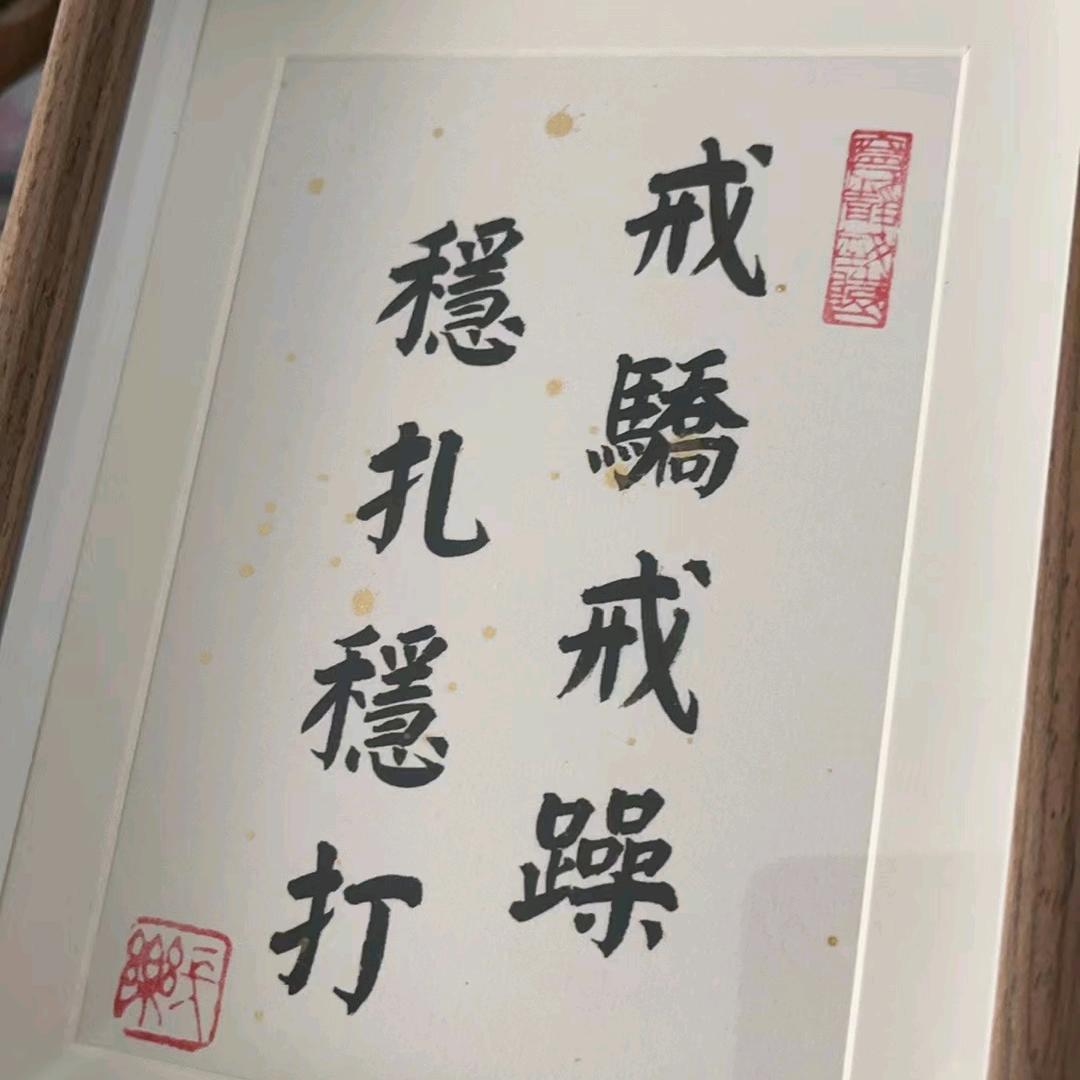 戒驕戒躁
穩扎穩打